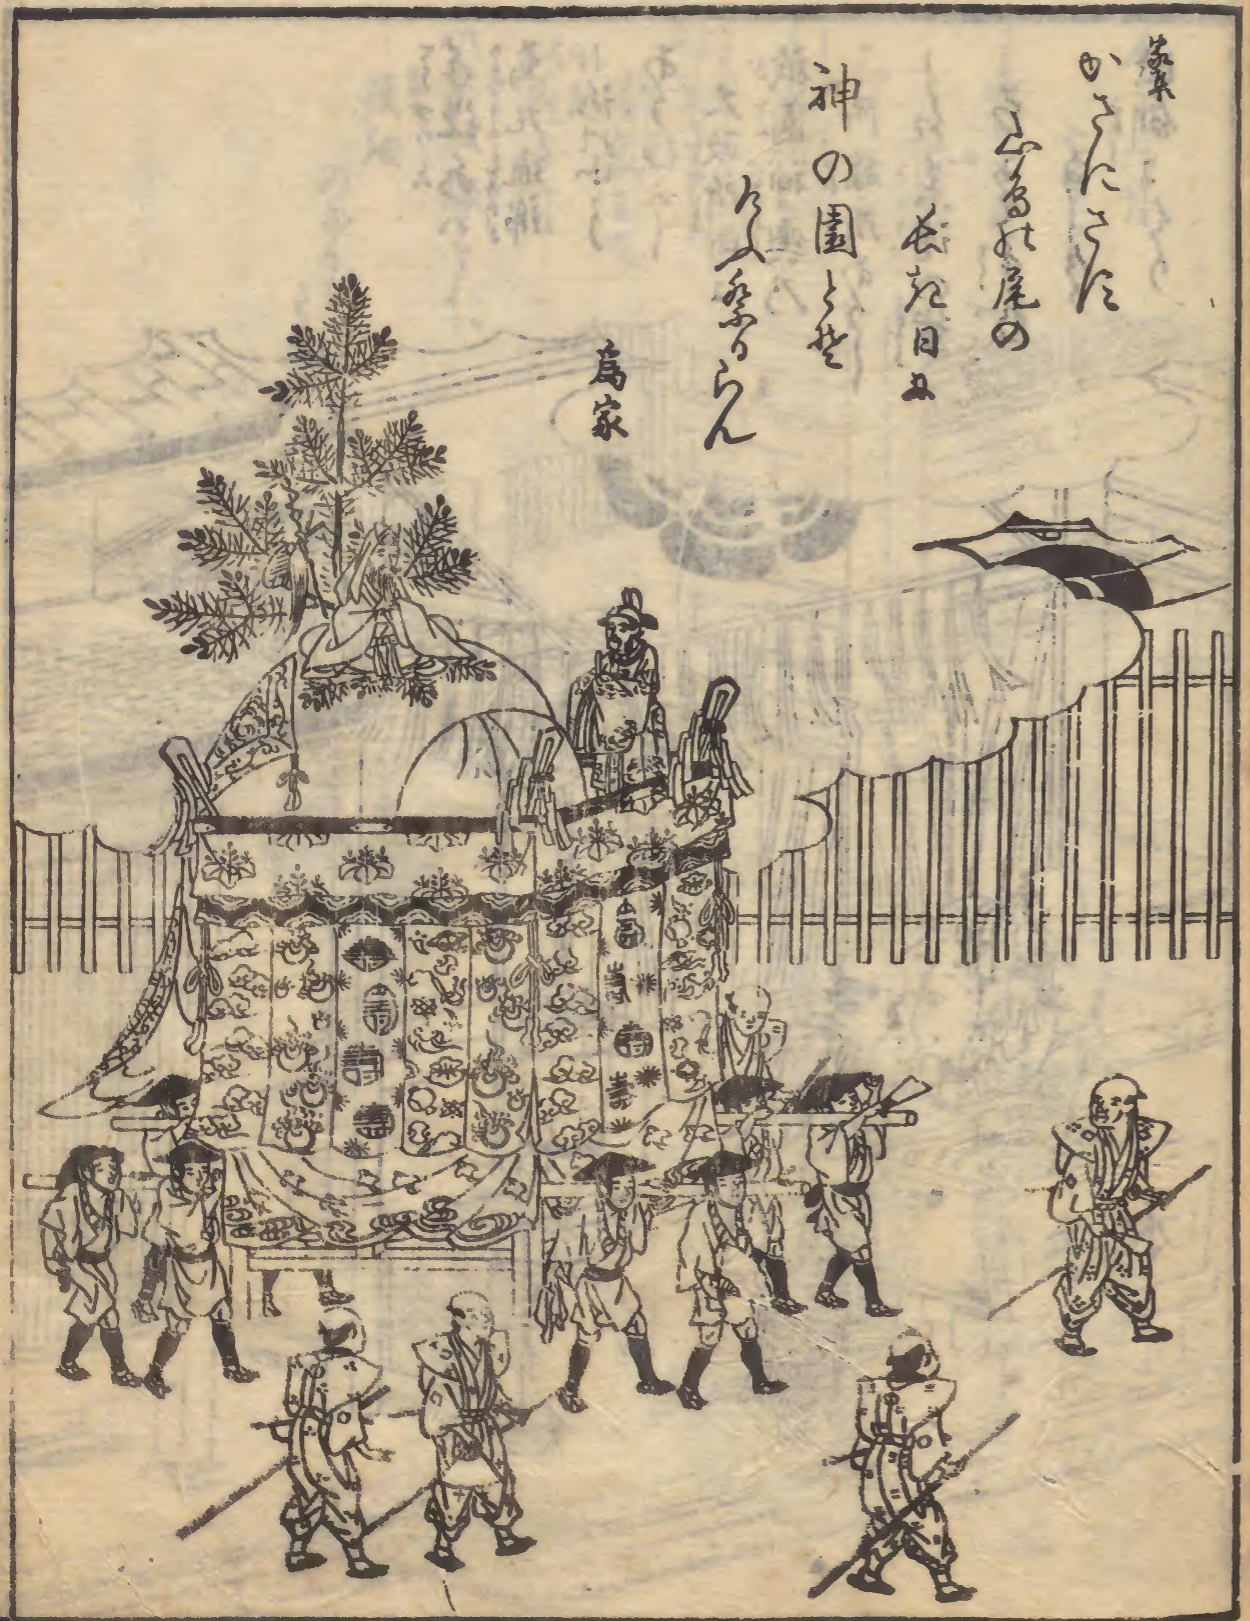 家集
かさにさす
山鳥の尾の
長き日に
神の園とそ
けふ祭るらん
爲家